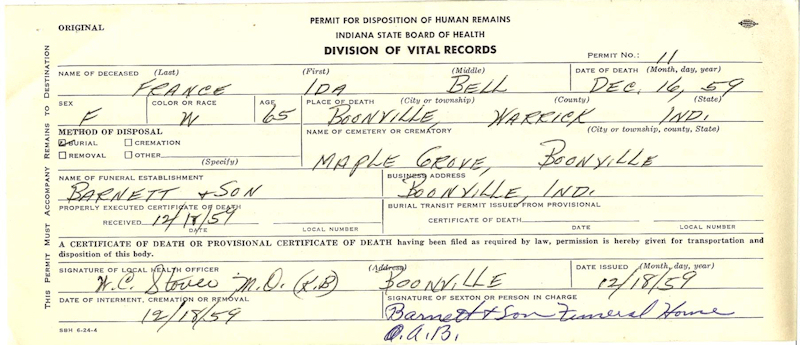 ORIGINAL
PERMIT FOR DISPOSITION OF HUMAN REMAINS
INDIANA STATE BOARD OF HEALTH
DIVISION OF VITAL RECORDS
PERMIT NO.: 11
THIS PERMIT MUST ACCOMPANY REMAINS TO DESTINATION
NAME OF DECEASED (Last) (First) (Middle) DATE OF DEATH (Month, day, year)
FRANCE IDA BELL DEC. 16, 59
SEX COLOR OR RACE AGE PLACE OF DEATH (City or township) (County) (State)
F W 65 BOONVILLE, WARRICK IND.
METHOD OF DISPOSAL NAME OF CEMETERY OR CREMATORY (City or township, county, State)
BURIAL CREMATION
REMOVAL OTHER (Specify) MAPLE GROVE, BOONVILLE
NAME OF FUNERAL ESTABLISHMENT BUSINESS ADDRESS
BARNETT + SON BOONVILLE, IND.
PROPERLY EXECUTED CERTIFICATE OF DEATH BURIAL TRANSIT PERMIT ISSUED FROM PROVISIONAL
RECEIVED 12/18/59 CERTIFICATE OF DEATH
DATE LOCAL NUMBER DATE LOCAL NUMBER
A CERTIFICATE OF DEATH OR PROVISIONAL CERTIFICATE OF DEATH having been filed as required by law, permission is hereby given for transportation and
disposition of this body.
SIGNATURE OF LOCAL HEALTH OFFICER (Address) DATE ISSUED (Month, day, year)
W.C. Stover M.D. (K.B) BOONVILLE 12/18/59
DATE OF INTERMENT, CREMATION OR REMOVAL SIGNATURE OF SEXTON OR PERSON IN CHARGE
12/18/59 Barnett + Son Funeral Home
O.A.B.
SBH 6-24-4